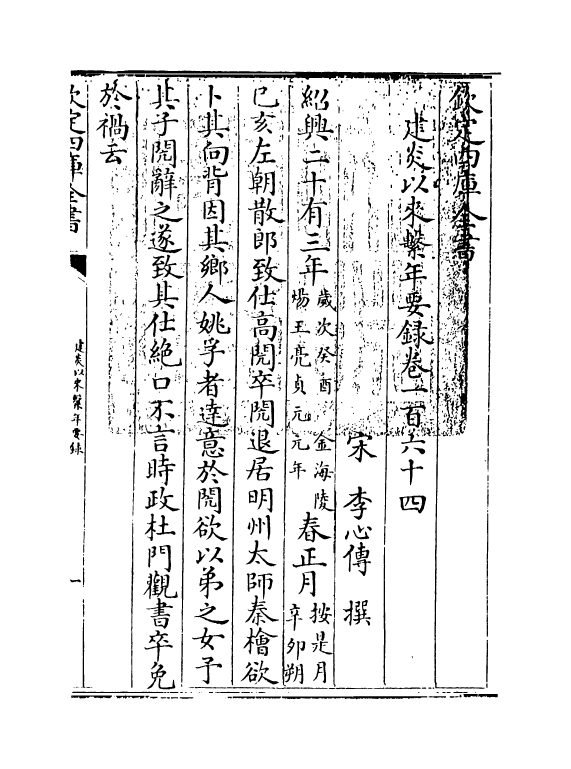 欽定四庫全書
建炎以來繫年要録卷一百六十四
宋 李心傳 撰
紹興二十有三年歲次癸酉 金海陵煬王亮貞元元年春正月按是月辛卯朔
己亥左朝散郎致仕高閌卒閌退居明州太師秦檜欲
卜其向背因其鄉人姚孚者達意於閌欲以弟之女予
其子閌辭之遂致其仕絶口不言時政杜門觀書卒免
於禍云
欽定四庫全書
建炎以來繫年要録
一